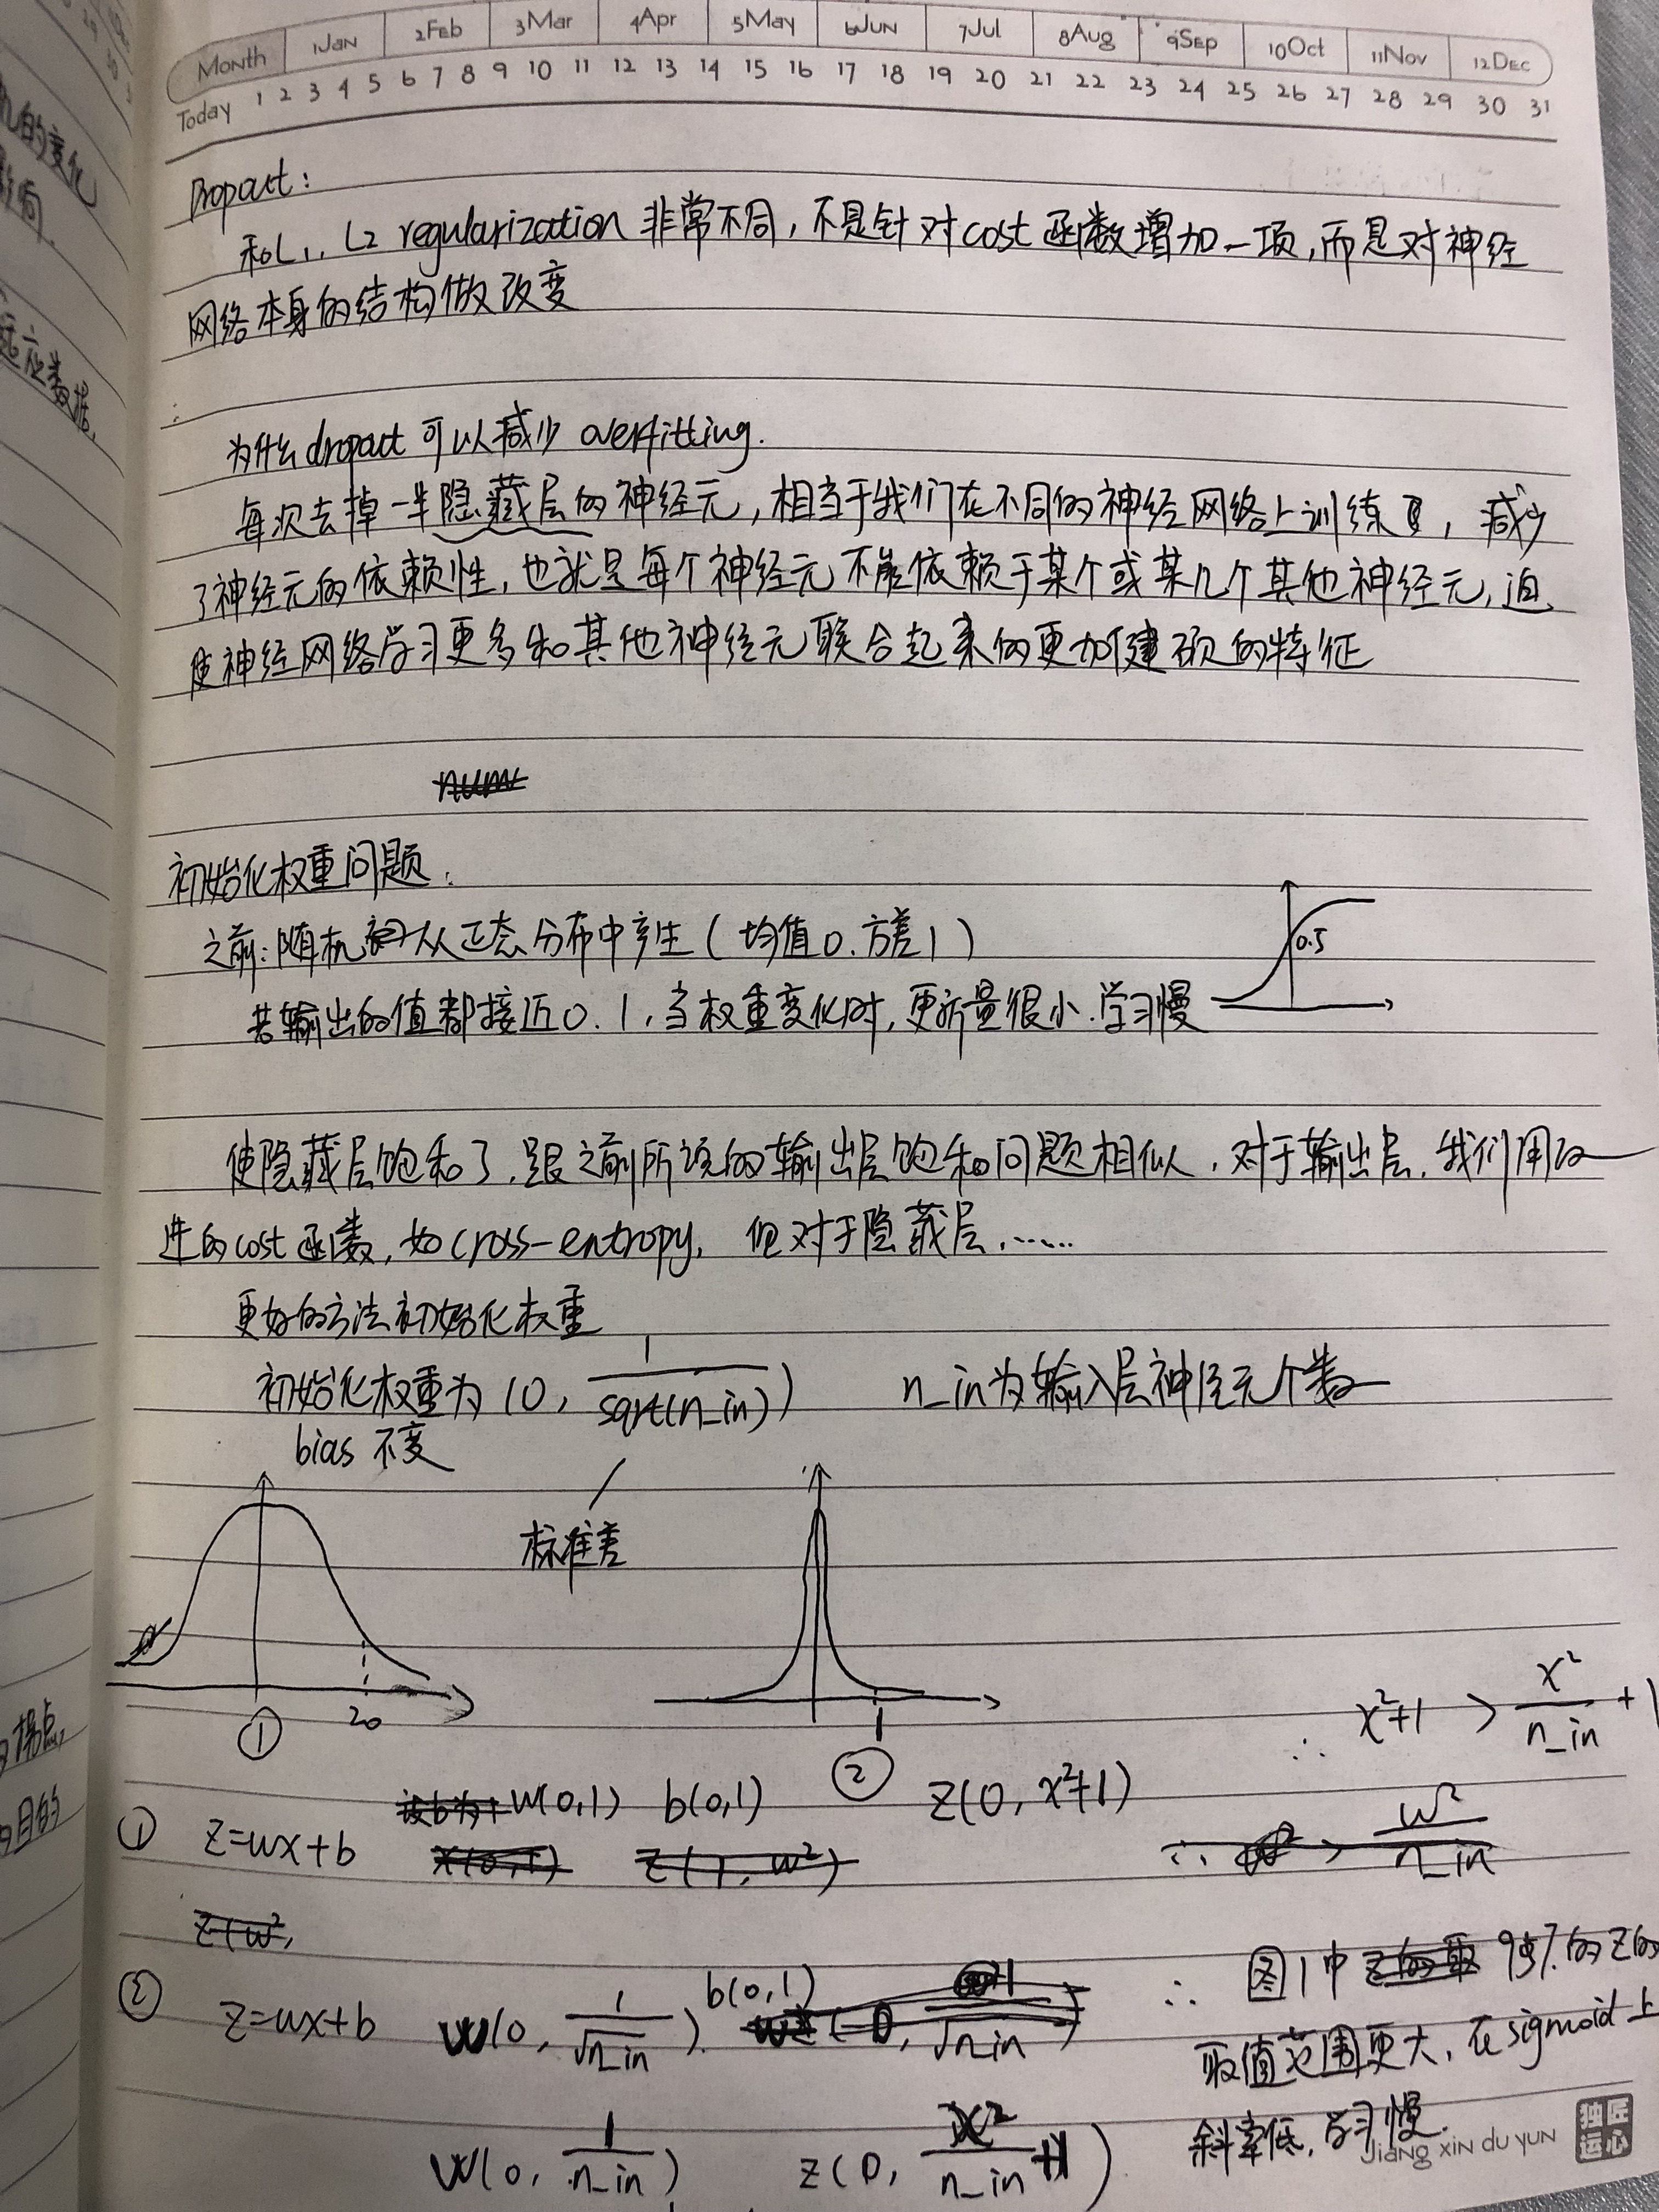 Month 1Jan 2Feb 3Mar 4Apr 5May 6Jun 7Jul 8Aug 9Sep 10Oct 11Nov 12Dec
Today 1 2 3 4 5 6 7 8 9 10 11 12 13 14 15 16 17 18 19 20 21 22 23 24 25 26 27 28 29 30 31
Dropout:
和L1, L2 regularization 非常不同, 不是针对cost函数增加一项, 而是对神经
网络本身的结构做改变
为什么dropout可以减少 overfitting.
每次去掉一半隐藏层的神经元, 相当于我们在不同的神经网络上训练, 减少
了神经元的依赖性, 也就是每个神经元不能依赖于某个或某几个其他神经元, 迫
使神经网络学习更多和其他神经元联合起来的更加健硕的特征
初始化权重问题:
之前: 随机从正态分布中产生 (均值0. 方差1)
0.5
若输出的值都接近0. 1, 当权重变化时, 更新量很小. 学习慢
使隐藏层饱和了, 跟之前所说的输出层饱和问题相似, 对于输出层, 我们用改
进的cost函数, 如cross-entropy, 但对于隐藏层, ……
更好的方法初始化权重
初始化权重为 (0, 1/sqrt(n_in)) n_in为输入层神经元个数
bias 不变
标准差
20
1
① ②
∴ x²+1 > x²/n_in + 1
① z=wx+b w(0,1) b(0,1) z(0, x²+1)
② z=wx+b w(0, 1/√n_in). b(0,1)
w(0, 1/n_in) z(0, x²/n_in +1)
∴ 图1中 95%的z的
取值范围更大, 在sigmoid上
斜率低, 学习慢.
Jiang xin du yun
独匠
运心
的变化
影响.
适应数据,
拐点,
目的